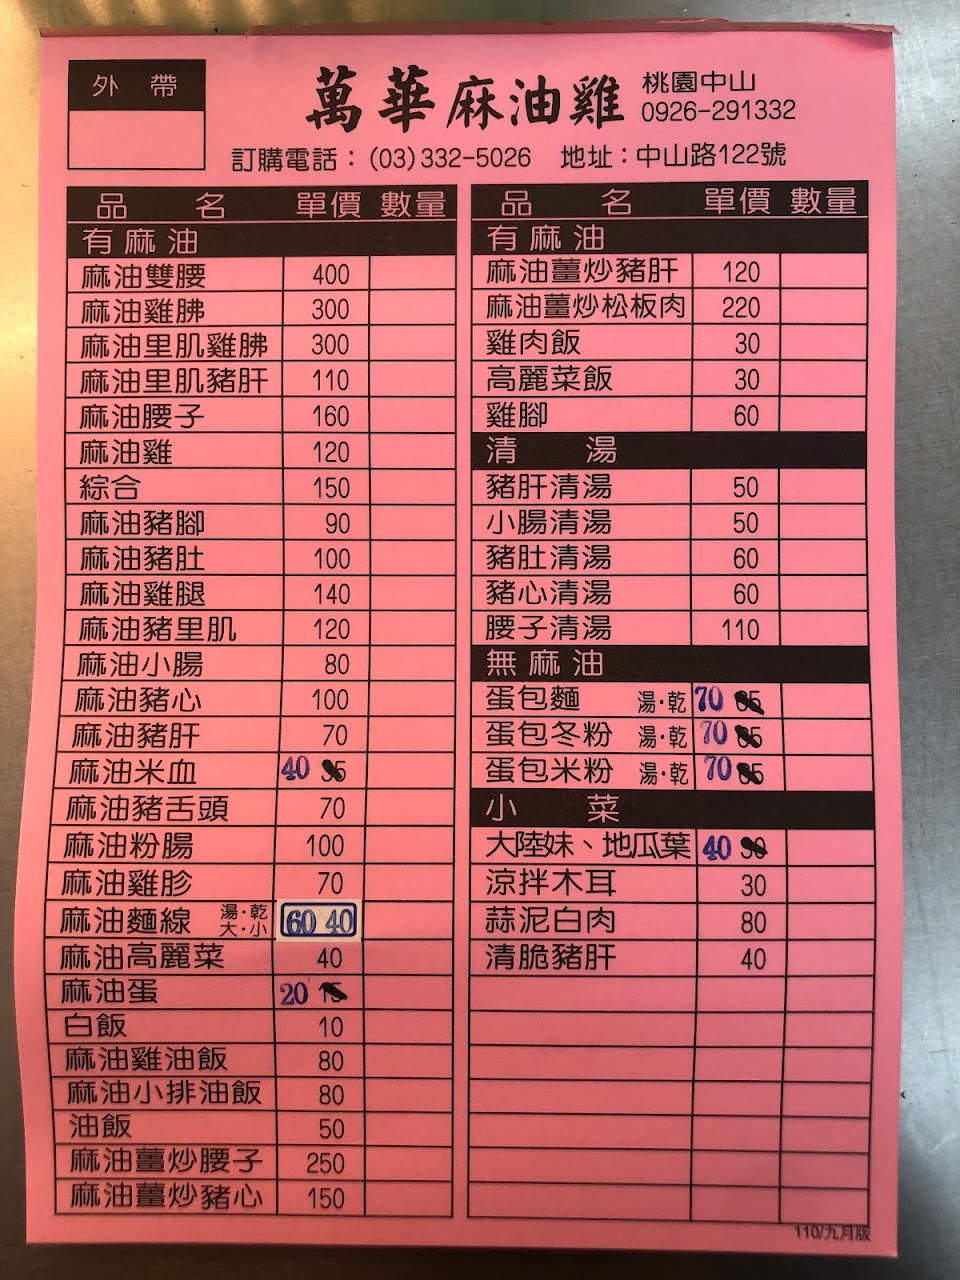 外 帶
萬華麻油雞
桃園中山
0926-291332
訂購電話：(03)332-5026 地址：中山路122號
品 名 單價 數量
有麻油
麻油雙腰 400
麻油雞胇 300
麻油里肌雞胇 300
麻油里肌豬肝 110
麻油腰子 160
麻油雞 120
綜合 150
麻油豬腳 90
麻油豬肚 100
麻油雞腿 140
麻油豬里肌 120
麻油小腸 80
麻油豬心 100
麻油豬肝 70
麻油米血 40
麻油豬舌頭 70
麻油粉腸 100
麻油雞胗 70
麻油麵線 湯·乾 大·小 60 40
麻油高麗菜 40
麻油蛋 20 15
白飯 10
麻油雞油飯 80
麻油小排油飯 80
油飯 50
麻油薑炒腰子 250
麻油薑炒豬心 150
品 名 單價 數量
有麻油
麻油薑炒豬肝 120
麻油薑炒松板肉 220
雞肉飯 30
高麗菜飯 30
雞腳 60
清 湯
豬肝清湯 50
小腸清湯 50
豬肚清湯 60
豬心清湯 60
腰子清湯 110
無麻油
蛋包麵 湯·乾 70
蛋包冬粉 湯·乾 70
蛋包米粉 湯·乾 70
小 菜
大陸妹、地瓜葉 40
涼拌木耳 30
蒜泥白肉 80
清脆豬肝 40
110/九月版